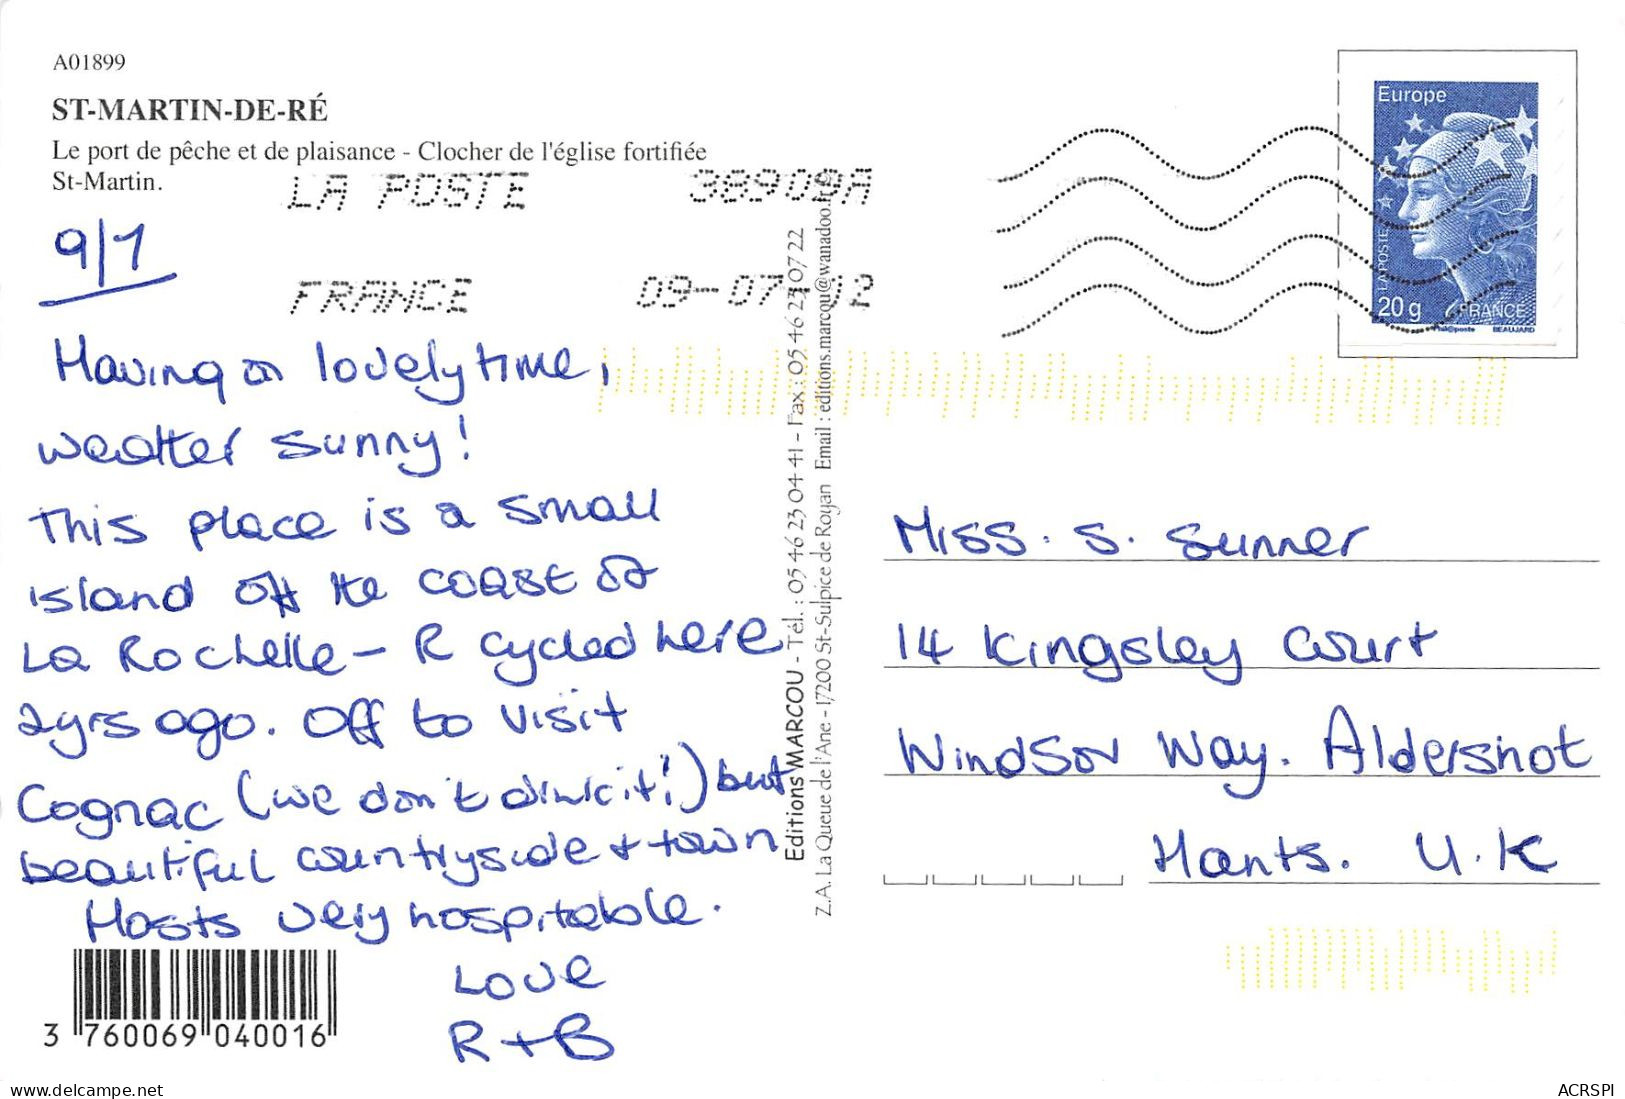 A01899
ST-MARTIN-DE-RÉ
Le port de pêche et de plaisance - Clocher de l'église fortifiée
St-Martin.
LA POSTE 38909A
FRANCE 09-07-12
9/7
Having a lovely time,
weather sunny!
This place is a small
island off the coast of
La Rochelle - R cycled here
2yrs ago. Off to visit
Cognac (we don't drink it!) but
beautiful countryside + town
Hosts very hospitable.
Love
R + B
3 760069 040016
Editions MARCOU - Tél. : 05 46 23 04 41 - Fax : 05 46 23 07 22
Z.A. La Queue de l'Ane - 17200 St-Sulpice de Royan Email : editions.marcou@wanadoo.fr
Europe
LA POSTE
20 g FRANCE
Phil@poste BEAUJARD
Miss. S. Sunner
14 Kingsley Court
Windsor Way. Aldershot
Hants. U.K
delcampe.net
ACRSPI